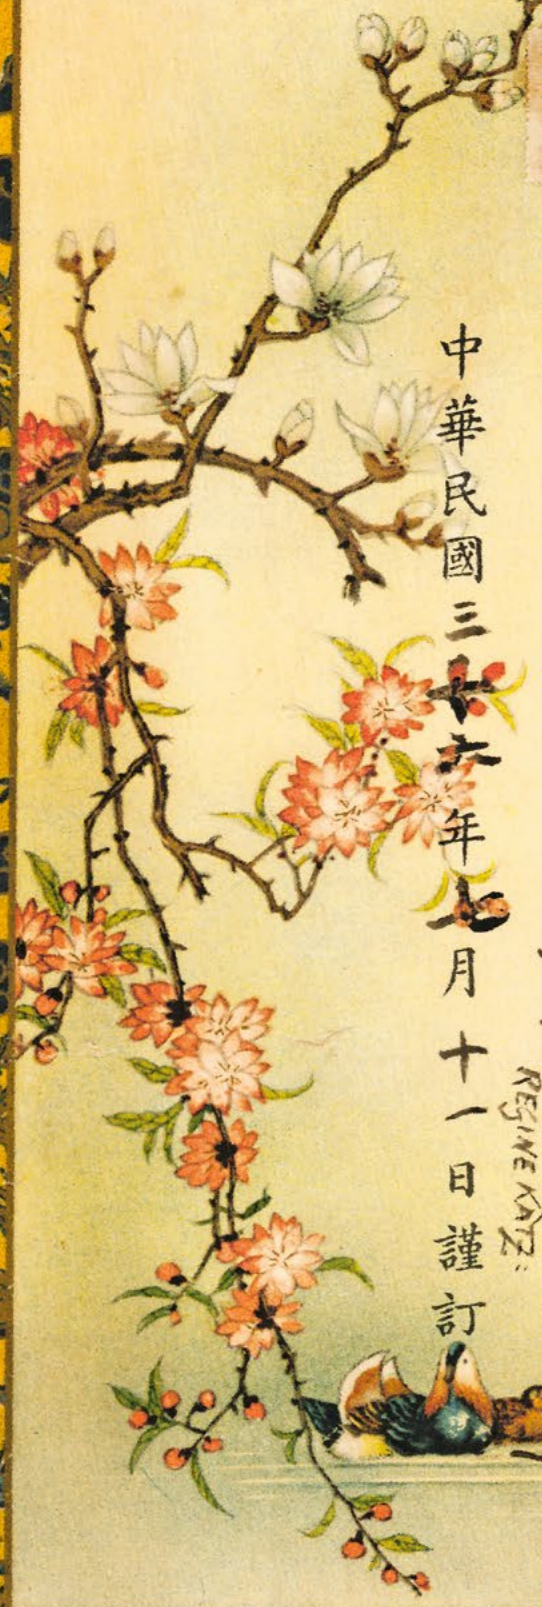 中華民國三十六年七月十一日謹訂
REGINE KATZ: